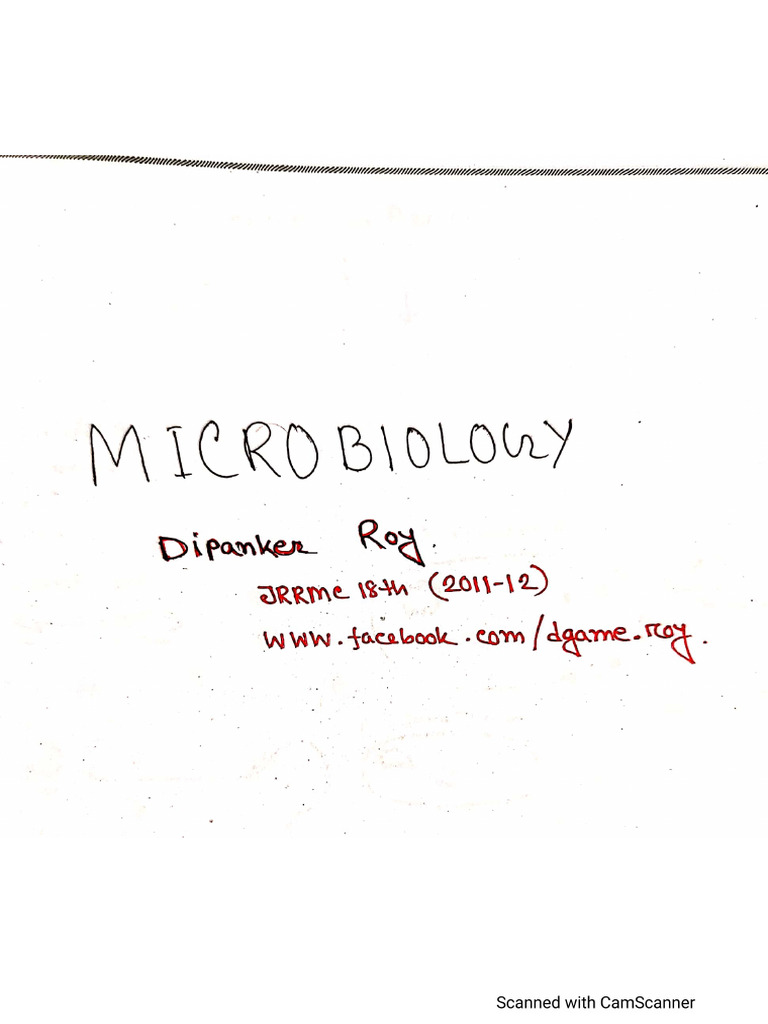 MICROBIOLOGY
Dipanker Roy.
JRRMC 18th (2011-12)
www.facebook.com/dgame.roy.
Scanned with CamScanner